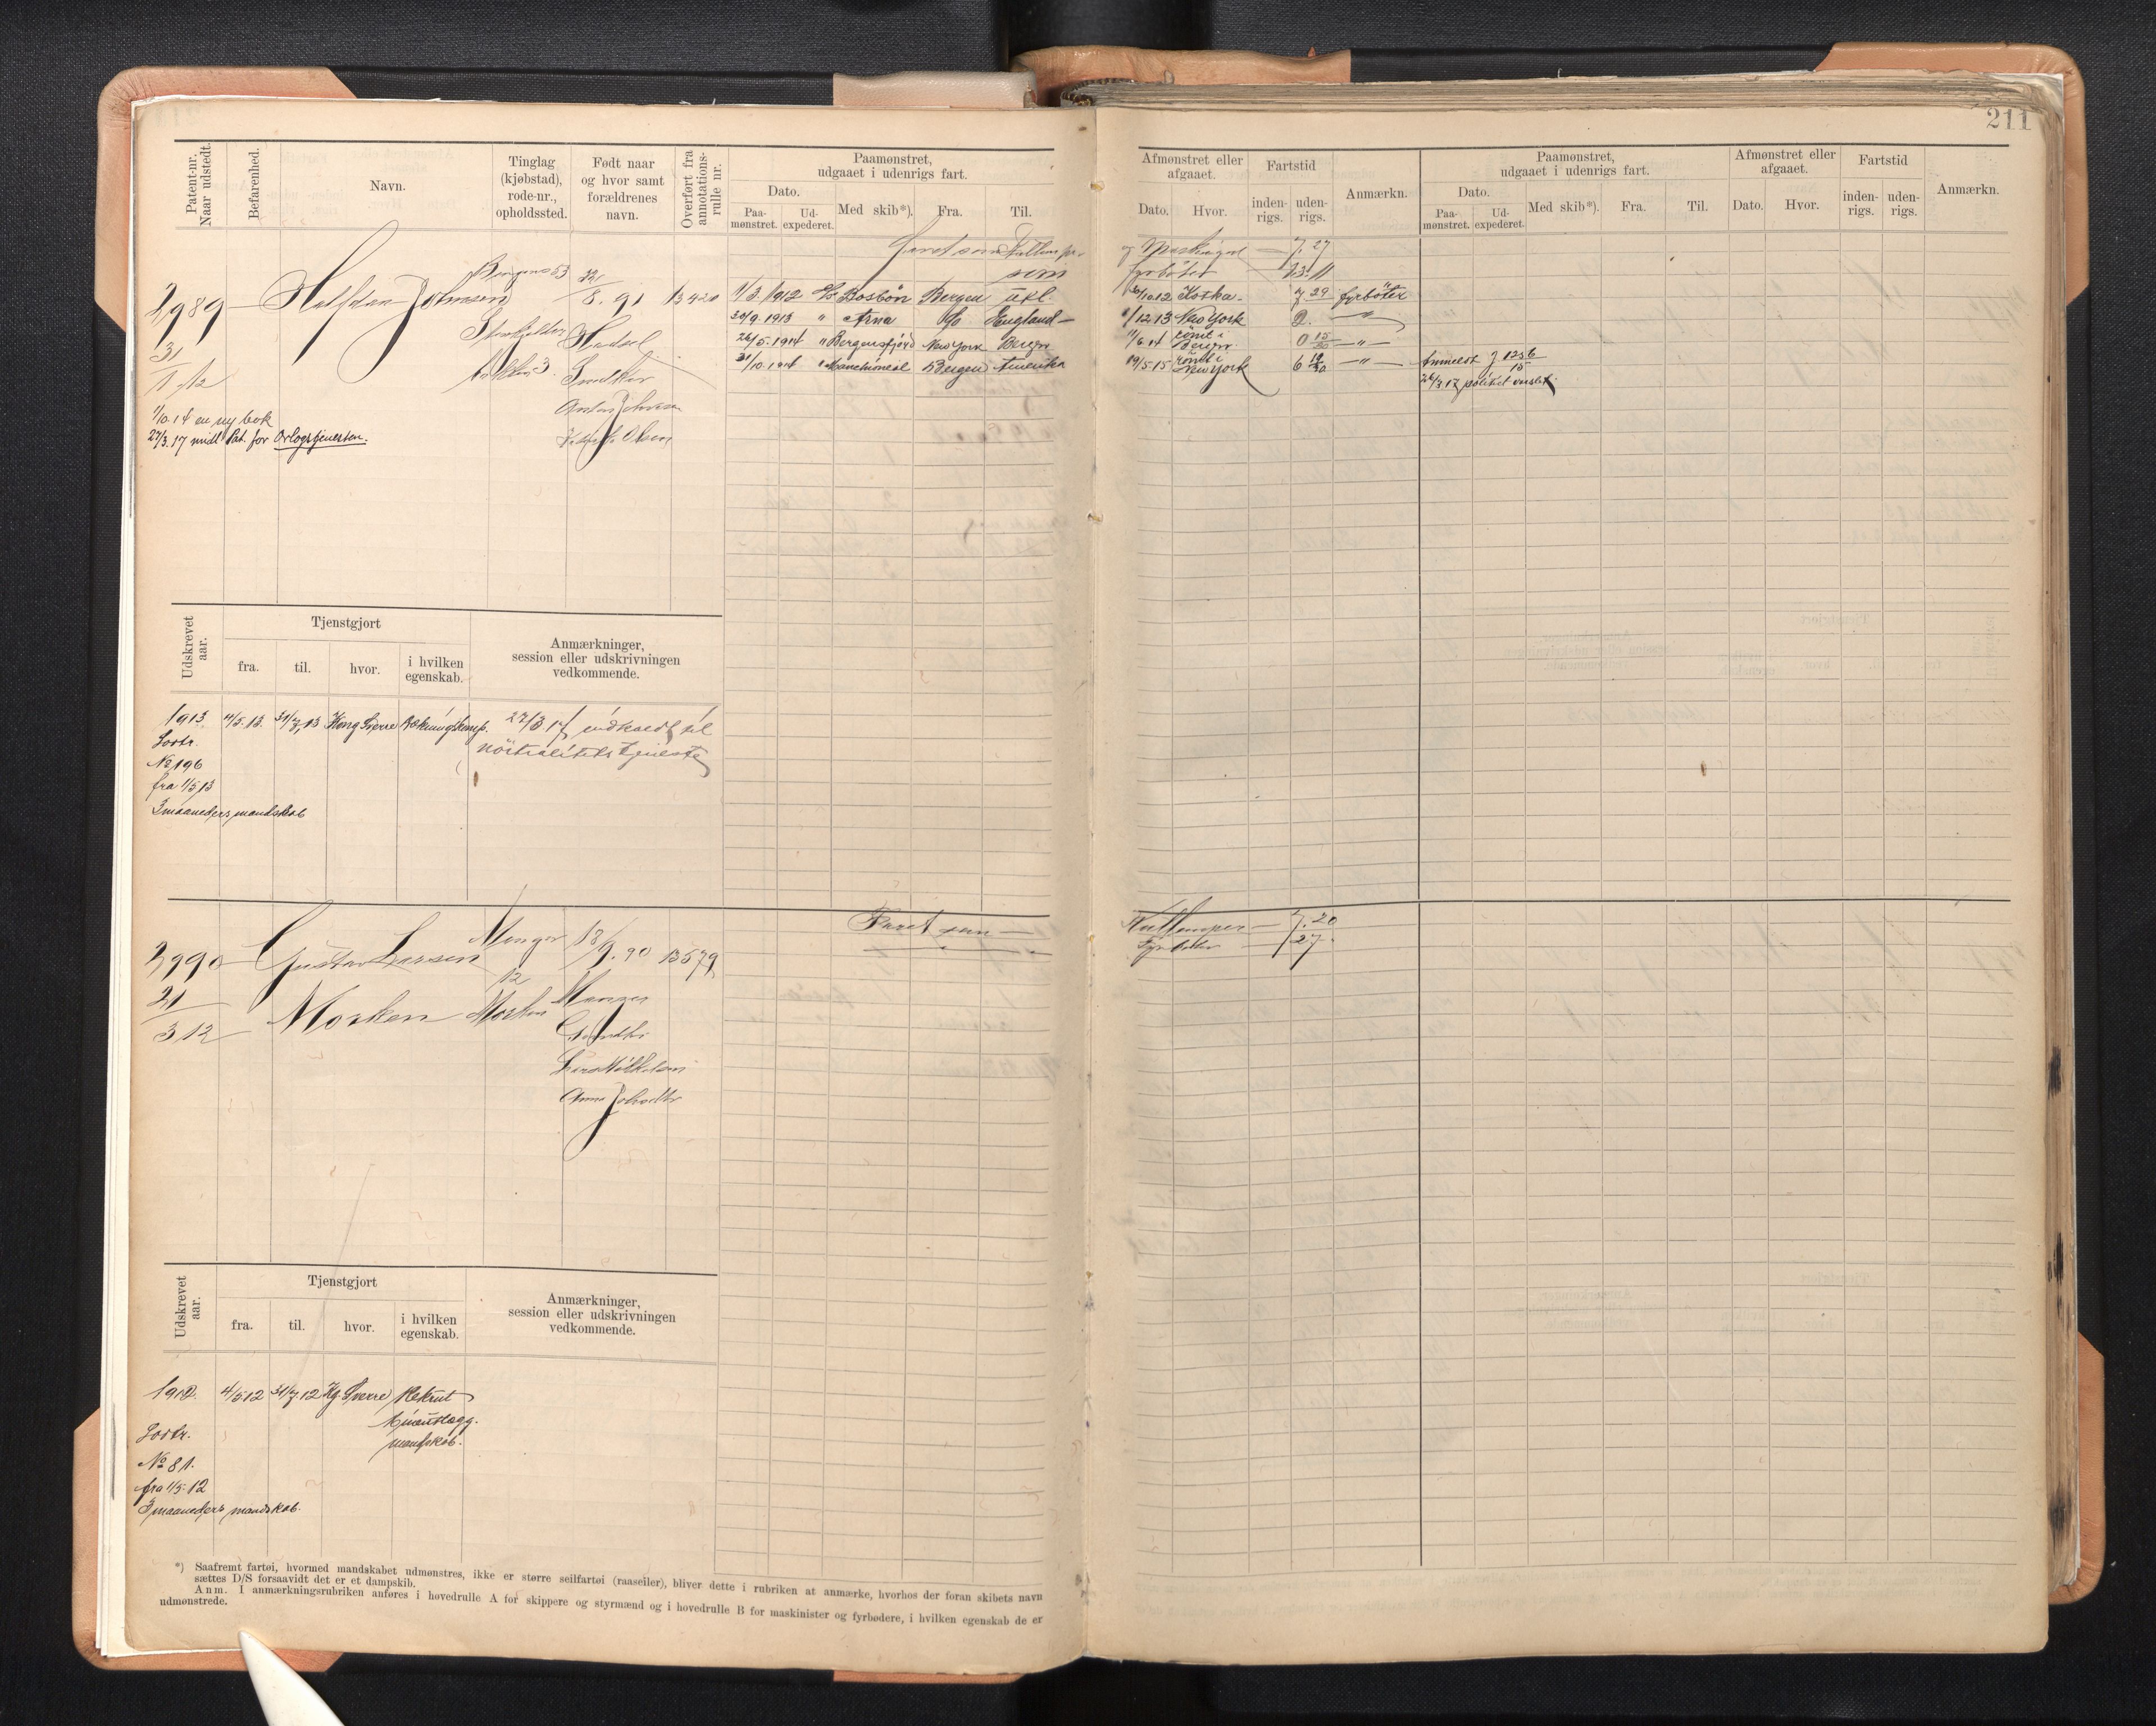 211
Patent-nr. Naar udstedt.
Befarenhed.
Navn.
Tinglag (kjøbstad), rode-nr., opholdssted.
Født naar og hvor samt forældrenes navn.
Overført fra annotations-rulle nr.
Paamønstret, udgaaet i udenrigs fart.
Dato.
Paa-mønstret.
Ud-expederet.
Med skib*).
Fra.
Til.
Afmønstret eller afgaaet.
Dato.
Hvor.
Fartstid
inden-rigs.
uden-rigs.
Anmærkn.
Paamønstret, udgaaet i udenrigs fart.
Dato.
Paa-mønstret.
Ud-expederet.
Med skib*).
Fra.
Til.
Afmønstret eller afgaaet.
Dato.
Hvor.
Fartstid
inden-rigs.
uden-rigs.
Anmærkn.
2989 Halfdan Johnsen
31/1 12
Bergens 53
22/8. 91
13420
Anton Johnsen
Olsen
1/10.14 en ny bok
27/3.17 midl Pat. for Orlogstjenesten.
Faret som Kullemper
og 7. 27
fyrbøter 23. 11
1/3. 1912 Bergen Utl. 10.12 Kotka. 7 29 fyrböter
30/9. 1913 " Arna do England 1/12 13 New York 2. "
26/5. 1914 " Bergensfjord New York Bergen 11/6 14 römt i Bergen. 0 15/30 "
31/10. 1914 " Bergen Amerika 19/5. 15 römt i New York 6 19/30 "
Anmeldt J 1256/15
26/3 17 politiet
Udskrevet aar.
Tjenstgjort
fra.
til.
hvor.
i hvilken egenskab.
Anmærkninger, session eller udskrivningen vedkommende.
1913. 4/5. 13. 31/7. 13 Kong Sverre
27/3 17 indkaldt til
nöitralitets tjeneste
No 196
fra 1/5 13
3 maaneders mandskab
2990 Gustav Larsen
Morken
21/3 12
Manger
12
Morken
18/9. 90
13579
Manger
Faret som Kullemper 7. 20
Fyrbøter 27.
Udskrevet aar.
Tjenstgjort
fra.
til.
hvor.
i hvilken egenskab.
Anmærkninger, session eller udskrivningen vedkommende.
1912. 4/5 12 31/7. 12 Kg. Sverre Rekrut
mandskab.
No 81.
fra 1/5. 12
3 maaneders mandskab.
*) Saafremt fartøi, hvormed mandskabet udmønstres, ikke er større seilfartøi (raaseiler), bliver dette i rubriken at anmærke, hvorhos der foran skibets navn
sættes D/S forsaavidt det er et dampskib.
Anm. I anmærkningsrubriken anføres i hovedrulle A for skippere og styrmænd og i hovedrulle B for maskinister og fyrbødere, i hvilken egenskab de er
udmønstrede.